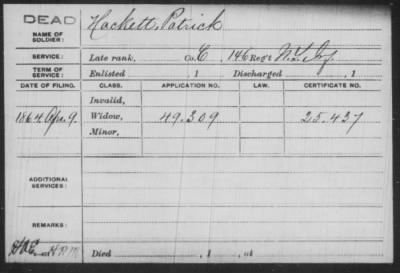 DEAD
Hackett, Patrick
NAME OF SOLDIER:
SERVICE: Late rank, Co. E, 146 Reg't N.Y. Inf.
TERM OF SERVICE: Enlisted , 1 Discharged , 1
DATE OF FILING. CLASS. APPLICATION NO. LAW. CERTIFICATE NO.
Invalid,
1864 Apr. 9. Widow, 49.309 25.437
Minor,
ADDITIONAL SERVICES:
REMARKS:
Died , 1 , at